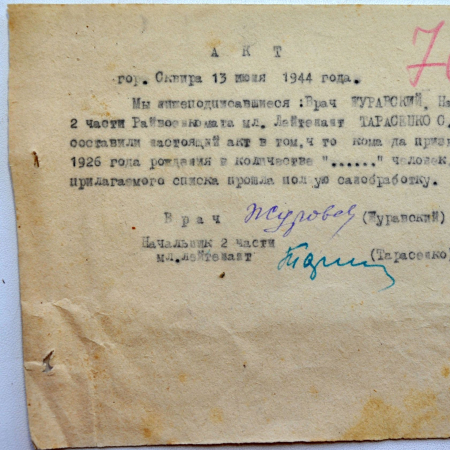 А К Т
гор. Сквира 13 июня 1944 года.
Мы нижеподписавшиеся: Врач ЖУРАВСКИЙ, На
2 части Райвоенкомата мл. Лейтенант ТАРАСЕНКО С.
составили настоящий акт в том, ч то кома да призы
1926 года рождения в количестве "......" человек,
прилагаемого списка прошла полную санобработку.
В р а ч (Журавский)
Начальник 2 части
мл. лейтенант (Тарасенко)